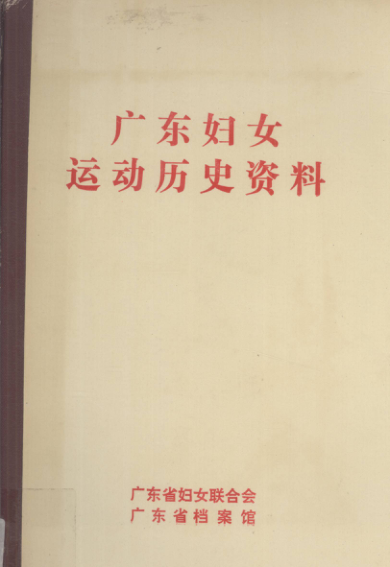 广东妇女
运动历史资料
广东省妇女联合会
广东省档案馆